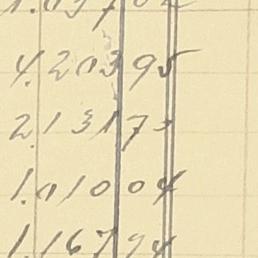 4.20395
2.13173
1.01004
1.16794